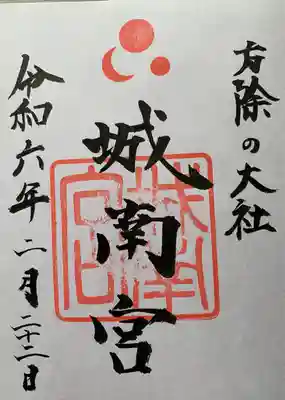 方除の大社
城南宮
城南宮印
令和六年二月二十二日